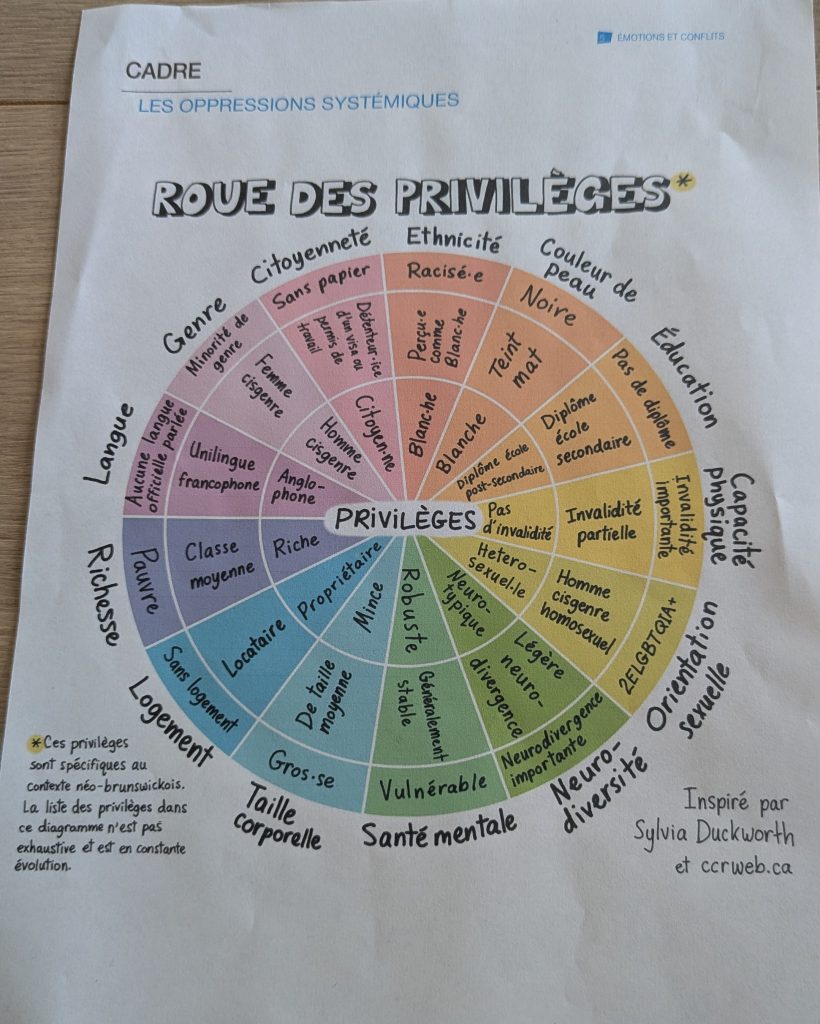 ÉMOTIONS ET CONFLITS
CADRE
LES OPPRESSIONS SYSTÉMIQUES
ROUE DES PRIVILÈGES*
Ethnicité
Racisé·e
Perçu·e
comme
Blanc·he
Blanc·he
Couleur de
peau
Noire
Teint
mat
Blanche
Éducation
Pas de diplôme
Diplôme
école
secondaire
Diplôme école
post-secondaire
Capacité
physique
Invalidité
importante
Invalidité
partielle
Pas
d'invalidité
Orientation
sexuelle
2ELGBTQIA+
Homme
cisgenre
homosexuel
Hetero-
sexuel·le
Neuro-
diversité
Neurodivergence
importante
Légère
neuro-
divergence
Neuro-
typique
Santé mentale
Vulnérable
Généralement
stable
Robuste
Taille
corporelle
Gros·se
De taille
moyenne
Mince
Logement
Sans logement
Locataire
Propriétaire
Richesse
Pauvre
Classe
moyenne
Riche
Langue
Aucune langue
officielle parlée
Unilingue
francophone
Anglo-
phone
Genre
Minorité de
genre
Femme
cisgenre
Homme
cisgenre
Citoyenneté
Sans papier
Détenteur·ice
d'un visa ou
permis de
travail
Citoyen·ne
PRIVILÈGES
*Ces privilèges
sont spécifiques au
contexte néo-brunswickois.
La liste des privilèges dans
ce diagramme n'est pas
exhaustive et est en constante
évolution.
Inspiré par
Sylvia Duckworth
et ccrweb.ca